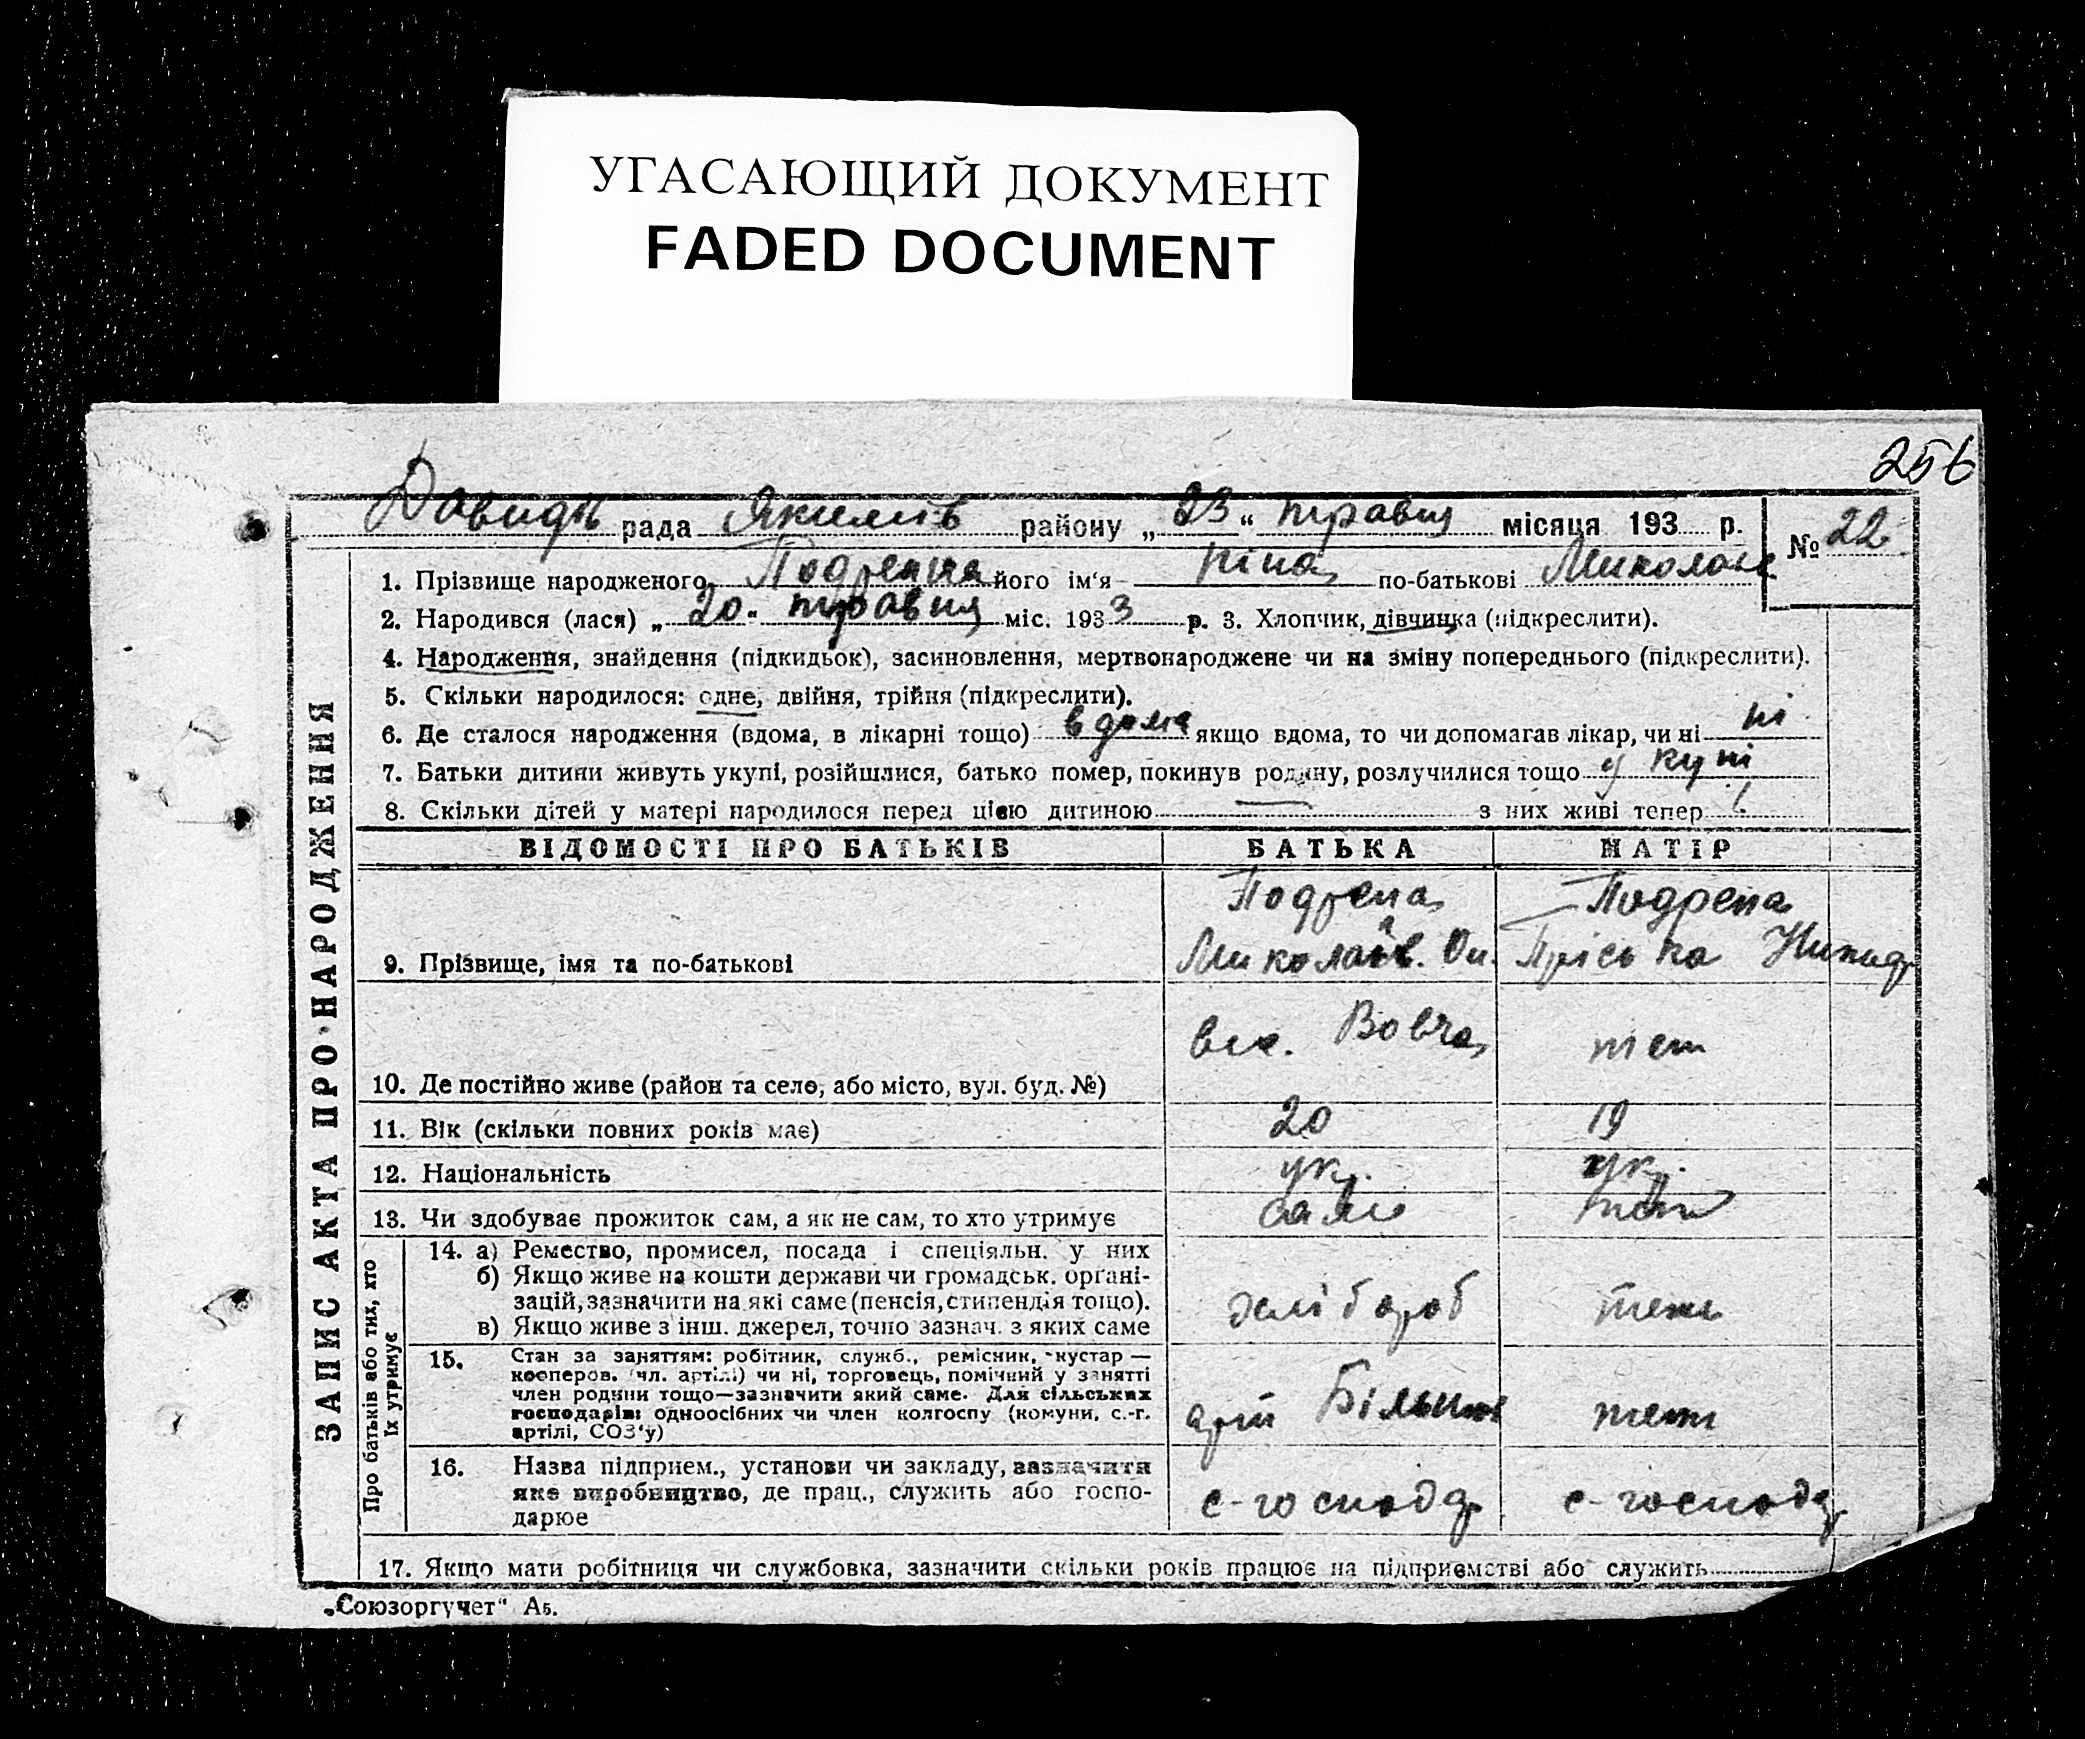 УГАСАЮЩИЙ ДОКУМЕНТ
FADED DOCUMENT
256
Давидів рада Якимів району „ 23 “ травня місяця 193 р. № 22
1. Прізвище народженого Подрепна його ім‘я Ніна по-батькові Миколаєв
2. Народився (лася) „ 20 “ травня міс. 1933 р. 3. Хлопчик, дівчинка (підкреслити).
4. Народження, знайдення (підкидьок), засиновлення, мертвонароджене чи на зміну попереднього (підкреслити).
5. Скільки народилося: одне, двійня, трійня (підкреслити).
6. Де сталося народження (вдома, в лікарні тощо) вдома якщо вдома, то чи допомагав лікар, чи ні ні
7. Батьки дитини живуть укупі, розійшлися, батько помер, покинув родину, розлучилися тощо у купі
8. Скільки дітей у матері народилося перед цією дитиною — з них живі тепер
ЗАПИС АКТА ПРО НАРОДЖЕННЯ
ВІДОМОСТІ ПРО БАТЬКІВ БАТЬКА МАТІР
Подрепа Подрепа
9. Прізвище, імя та по-батькові Прiська
Вовча теж
10. Де постійно живе (район та село, або місто, вул. буд. №)
11. Вік (скільки повних років має) 20 19
12. Національність укр. укр.
13. Чи здобуває прожиток сам, а як не сам, то хто утримує сам теж
Про батьків або тих, хто
їх утримує
14. а) Ремество, промисел, посада і спеціяльн. у них
б) Якщо живе на кошти держави чи громадськ. органі-
зацій, зазначити на які саме (пенсія, стипендія тощо).
в) Якщо живе з інш. джерел, точно зазнач. з яких саме
хлібороб теж
15. Стан за заняттям: робітник, служб., ремісник, кустар —
кооперов. (чл. артілі) чи ні, торговець, помічний у занятті
член родини тощо—зазначити який саме. Для сільських
господарів: одноосібних чи член колгоспу (комуни, с.-г.
артілі, СОЗ‘у)
арт теж
16. Назва підприєм., установи чи закладу, зазначити
яке виробництво, де прац., служить або госпо-
дарює
с-господар с-господар
17. Якщо мати робітниця чи службовка, зазначити скільки років працює на підприємстві або служить
„Союзоргучет“ А5.